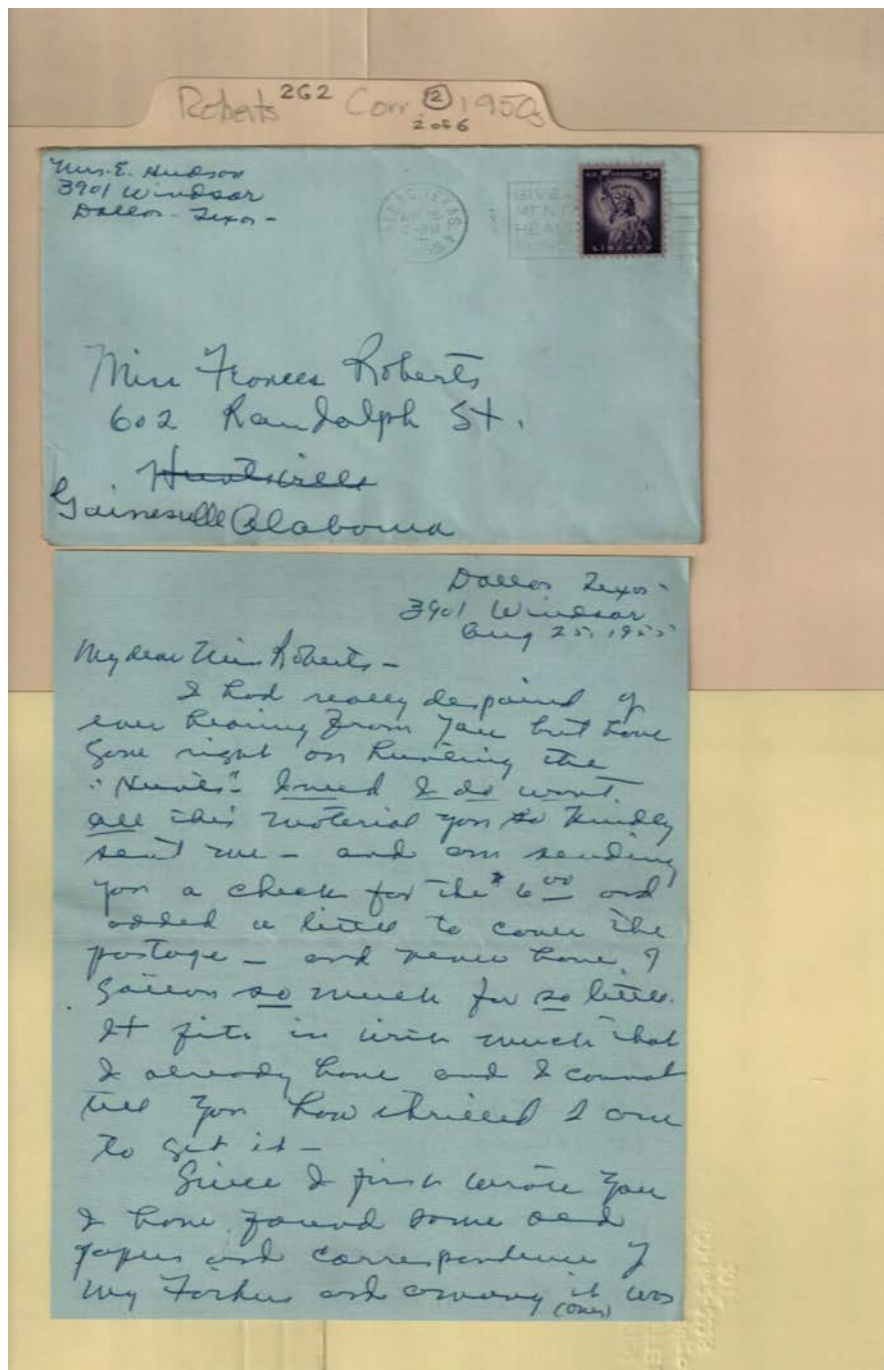 Roberts 2G2 Corr ② 1950s
2 of 6
Mrs. E. Hudson
3901 Windsor
Dallas - Texas -
DALLAS, TEXAS
GIVE
MENT
HEAL
U.S. POSTAGE 3¢
LIBERTY
Miss Frances Roberts
602 Randolph St.
Huntsville
Gainesville Alabama
Dallas Texas -
3901 Windsor
Aug 25, 1955
My dear Miss Roberts -
I had really despaired of
ever hearing from you but have
gone right on hunting the
"Hunts". Indeed I do want
all this material you so kindly
sent me - and am sending
you a check for the $6 00 and
added a little to cover the
postage - and never have I
gotten so much for so little.
It fits in with much that
I already have and I cannot
tell you how thrilled I am
to get it -
Since I first wrote you
I have found some old
papers and correspondence of
my Father and among it was
(one)